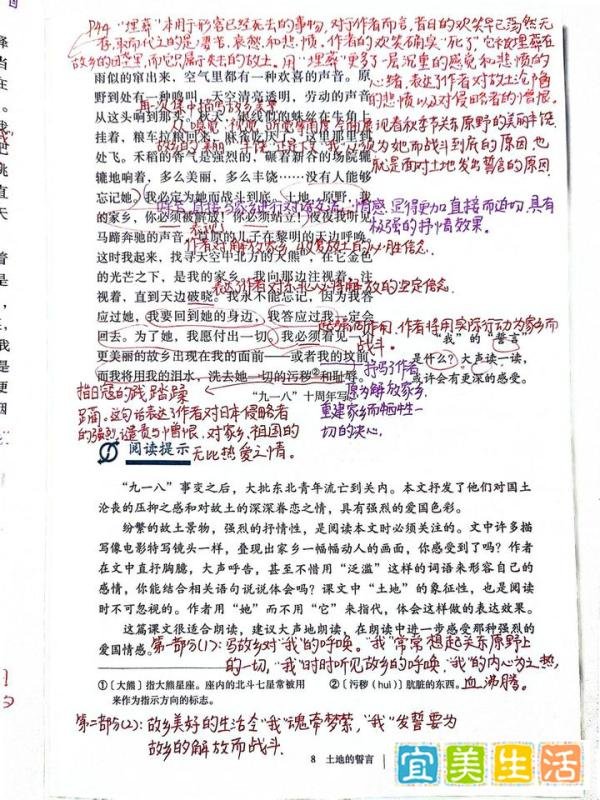 P44 "埋葬"本用于形容已经死去的事物,对于作者而言,昔日的欢笑早已荡然无
存,取而代之的是
哀愁和悲愤。作者的欢笑确实"死了",它被埋葬在
故乡的田
里,而它只属于失去的故土。用"埋葬"更多了一层沉重的感觉和悲愤的
心绪,表达了作者对故土沦陷
的悲愤以及对侵略者的憎恨。
雨似的窜出来,空气里都有一种欢喜的声音。原
野处处有一种鸣叫,天空清亮透明,劳动的声音
从这头响到那头。秋天,银线似的蛛丝在牛角上
挂着,粮车拉粮回来,麻雀吃厌了,这里那里到
处飞。禾稻的香气是强烈的,碾着新谷的场院辘
辘地响着,多么美丽,多么丰饶……没有人能够
忘记她。我必定为她而战斗到底。土地,原野,我
的家乡,你必须被解放!你必须站立!夜夜我听见
马蹄奔驰的声音,草原的儿子在黎明的天边呼唤。
这时我起来,找寻天空中北方的大熊①,在它金色
的光芒之下,是我的家乡。我向那边注视着,注
视着,直到天边破晓。我永不能忘记,因为我答
应过她,我要回到她的身边,我答应过我一定会
回去。为了她,我愿付出一切。我必须看见一个
更美丽的故乡出现在我的面前——或者我的坟前。
而我将用我的泪水,洗去她一切的污秽②和耻辱。
"九一八"十周年写。
就是面对土地发出誓言的原因
情感显得更加直接而迫切,具有
极强的抒情效果。
作者将用实际行动为家乡而
战斗。
"我"的"誓言"
是什么?大声读一读,
或许会有更深的感受。
抒写了作者
愿为解放家乡,
重建家乡而牺牲一
切的决心。
指日寇的践踏蹂
躏。这句话表达了作者对日本侵略者
的强烈谴责与憎恨,对家乡、祖国的
无比热爱之情。
阅读提示
"九一八"事变之后,大批东北青年流亡到关内。本文抒发了他们对国土
沦丧的压抑之感和对故土的深深眷恋之情,具有强烈的爱国色彩。
纷繁的故土景物,强烈的抒情性,是阅读本文时必须关注的。文中许多描
写像电影特写镜头一样,叠现出家乡一幅幅动人的画面,你感受到了吗?作者
在文中直抒胸臆,大声呼告,甚至不惜用"泛滥"这样的词语来形容自己的
感情,你能结合相关语句说说体会吗?课文中"土地"的象征性,也是阅读
时不可忽视的。作者用"她"而不用"它"来指代,体会这样做的表达效果。
这篇课文很适合朗读,建议大声地朗读,在朗读中进一步感受那种强烈的
爱国情感。
第一部分(1):写故乡对"我"的呼唤。"我"常常想起关东原野上
的一切,"我"时时听见故乡的呼唤,"我"的内心为之热
血沸腾。
①〔大熊〕指大熊星座。座内的北斗七星常被用
来作为指示方向的标志。
②〔污秽(huì)〕肮脏的东西。
第二部分(2):故乡美好的生活令"我"魂牵梦萦,"我"发誓要为
故乡的解放而战斗.
8 土地的誓言
宜美生活